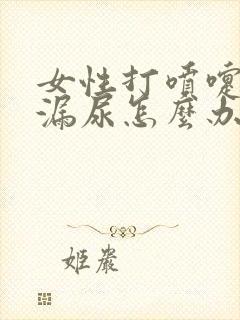 女性打喷嚏
漏尿怎麽办
姬巖